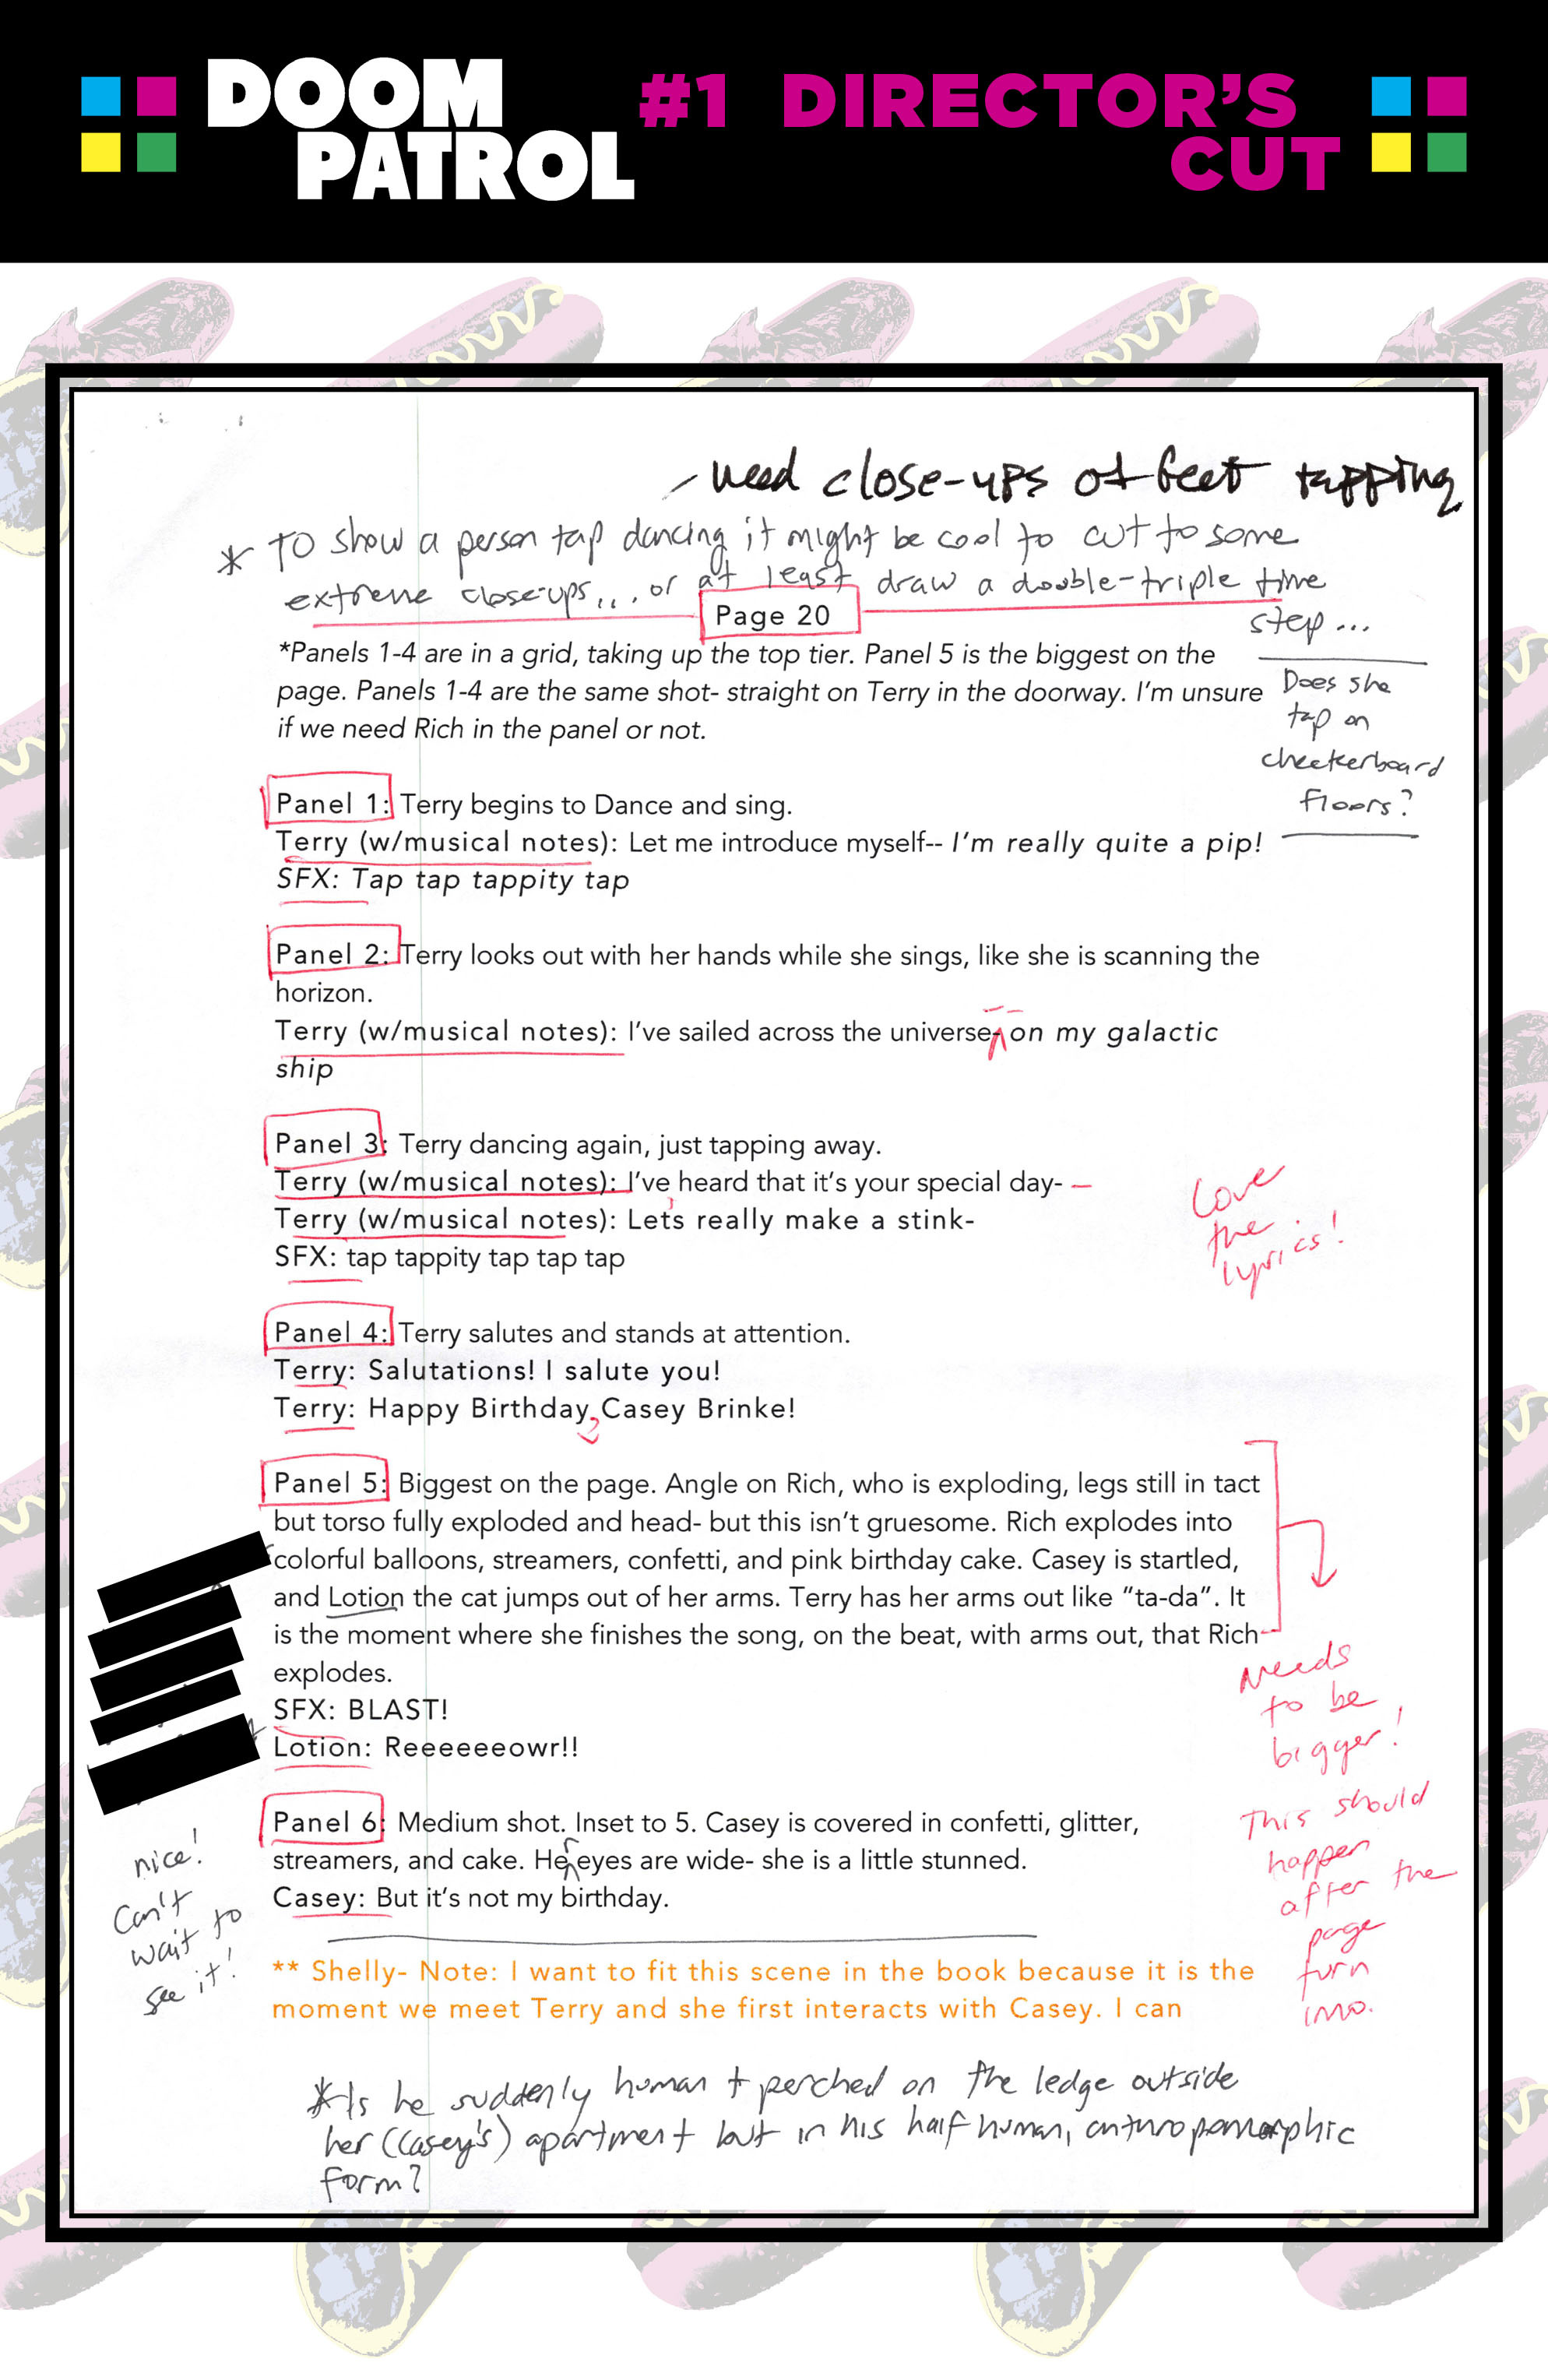 DOOM PATROL
#1 DIRECTOR'S CUT
- need close-ups of feet tapping
* TO show a person tap dancing it might be cool to cut to some
extreme close-ups... or at least draw a double-triple time
step...
Page 20
*Panels 1-4 are in a grid, taking up the top tier. Panel 5 is the biggest on the
page. Panels 1-4 are the same shot- straight on Terry in the doorway. I'm unsure
if we need Rich in the panel or not.
Does she
tap on
checkerboard
floors?
Panel 1: Terry begins to Dance and sing.
Terry (w/musical notes): Let me introduce myself-- I'm really quite a pip!
SFX: Tap tap tappity tap
Panel 2: Terry looks out with her hands while she sings, like she is scanning the
horizon.
Terry (w/musical notes): I've sailed across the universe-- on my galactic
ship
Panel 3: Terry dancing again, just tapping away.
Terry (w/musical notes): I've heard that it's your special day--
Terry (w/musical notes): Let's really make a stink-
SFX: tap tappity tap tap tap
Love
the
lyrics!
Panel 4: Terry salutes and stands at attention.
Terry: Salutations! I salute you!
Terry: Happy Birthday, Casey Brinke!
Panel 5: Biggest on the page. Angle on Rich, who is exploding, legs still in tact
but torso fully exploded and head- but this isn't gruesome. Rich explodes into
colorful balloons, streamers, confetti, and pink birthday cake. Casey is startled,
and Lotion the cat jumps out of her arms. Terry has her arms out like "ta-da". It
is the moment where she finishes the song, on the beat, with arms out, that Rich
explodes.
SFX: BLAST!
Lotion: Reeeeeeowr!!
Needs
to be
bigger!
This should
happen
after the
page
turn
imo.
Panel 6: Medium shot. Inset to 5. Casey is covered in confetti, glitter,
streamers, and cake. Her eyes are wide- she is a little stunned.
Casey: But it's not my birthday.
nice!
Can't
wait to
see it!
** Shelly- Note: I want to fit this scene in the book because it is the
moment we meet Terry and she first interacts with Casey. I can
*Is he suddenly human + perched on the ledge outside
her (Casey's) apartment but in his half human, anthropomorphic
form?